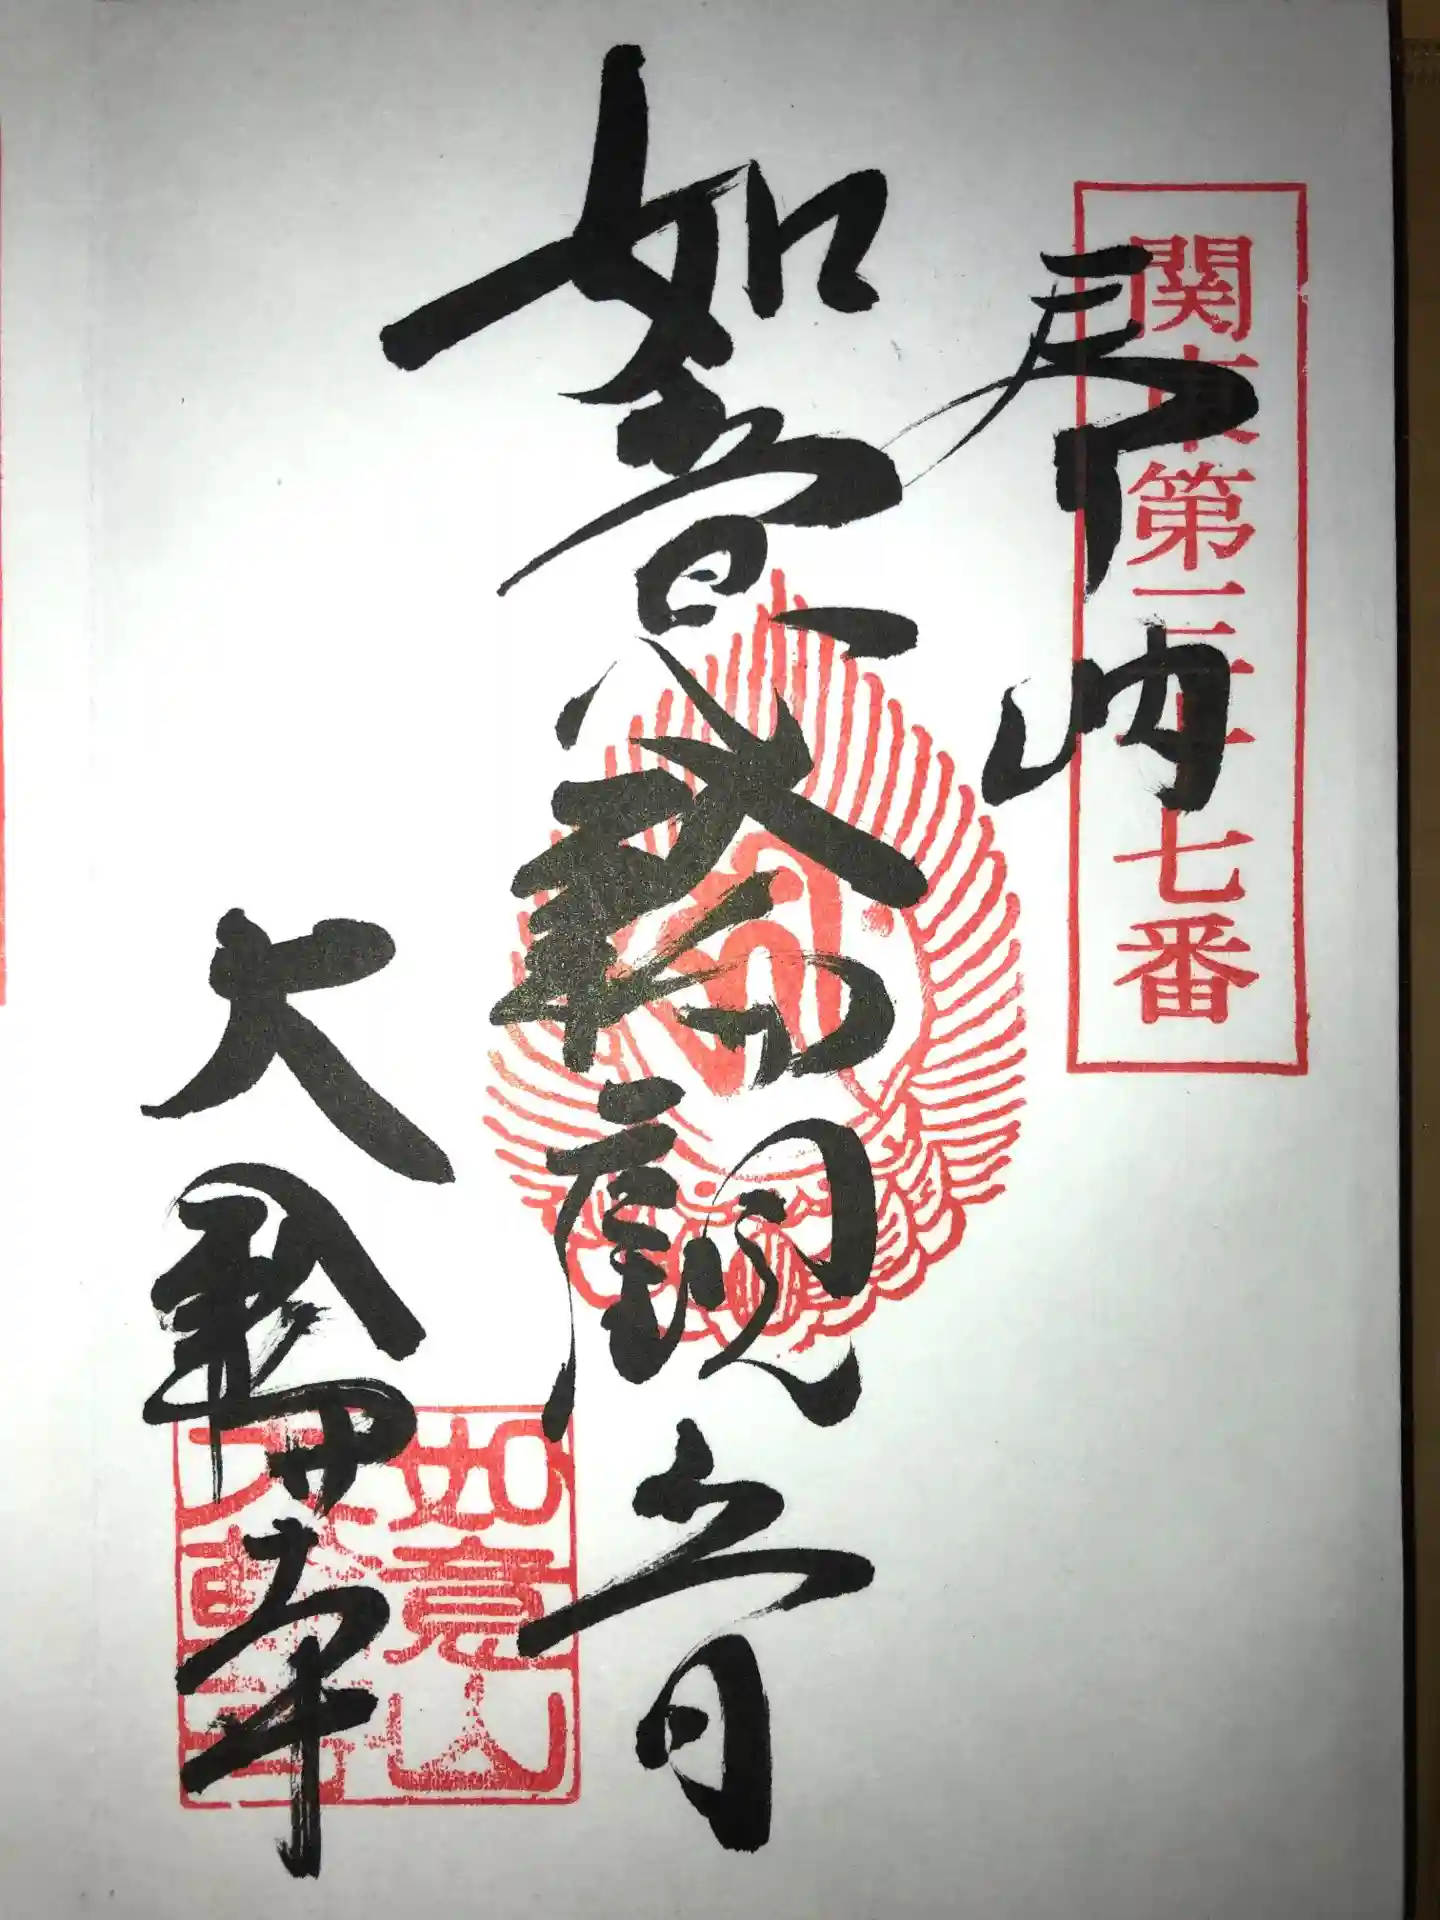 関東第三十七番
如意輪観音
大輪寺
如意山
大輪寺